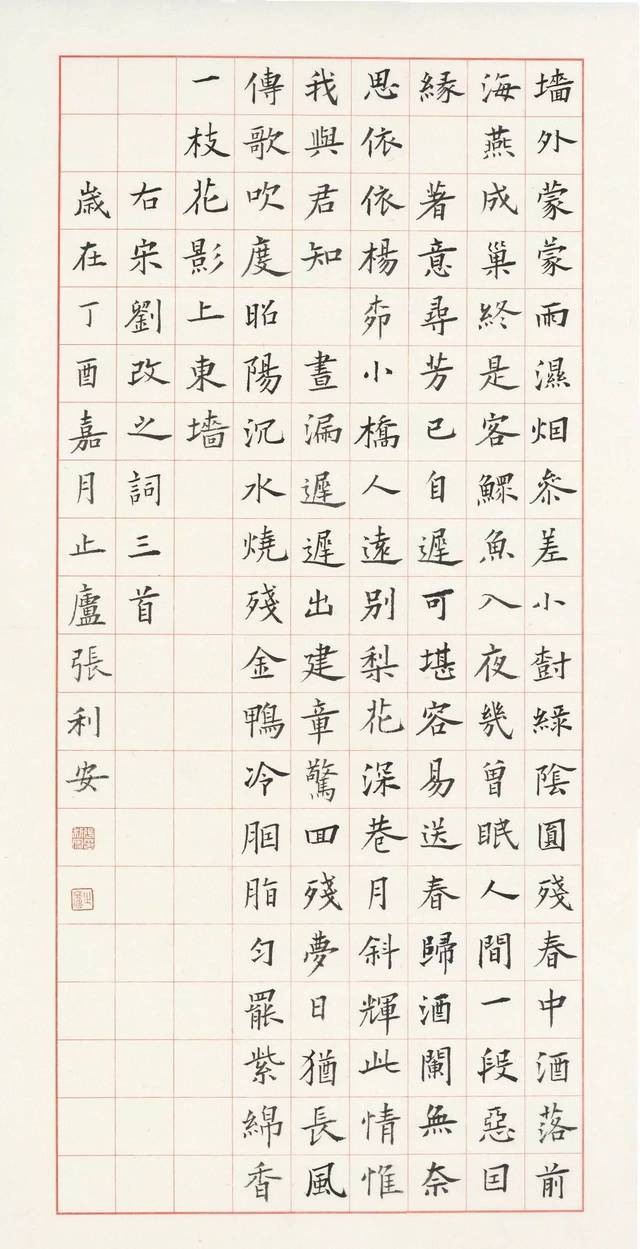 墻外蒙蒙雨濕烟參差小尌綠陰圓殘春中酒落前
海燕成巢終是客鰥魚入夜幾曾眠人間一段惡囙
緣 著意尋芳已自遲可堪容易送春歸酒闌無奈
思依依楊桺小橋人遠别梨花深巷月斜輝此情惟
我與君知 晝漏遲遲出建章驚囬殘夢日猶長風
傳歌吹度昭陽沉水燒殘金鴨冷胭脂匀罷紫綿香
一枝花影上東墻
右宋劉改之詞三首
歲在丁酉嘉月止廬張利安